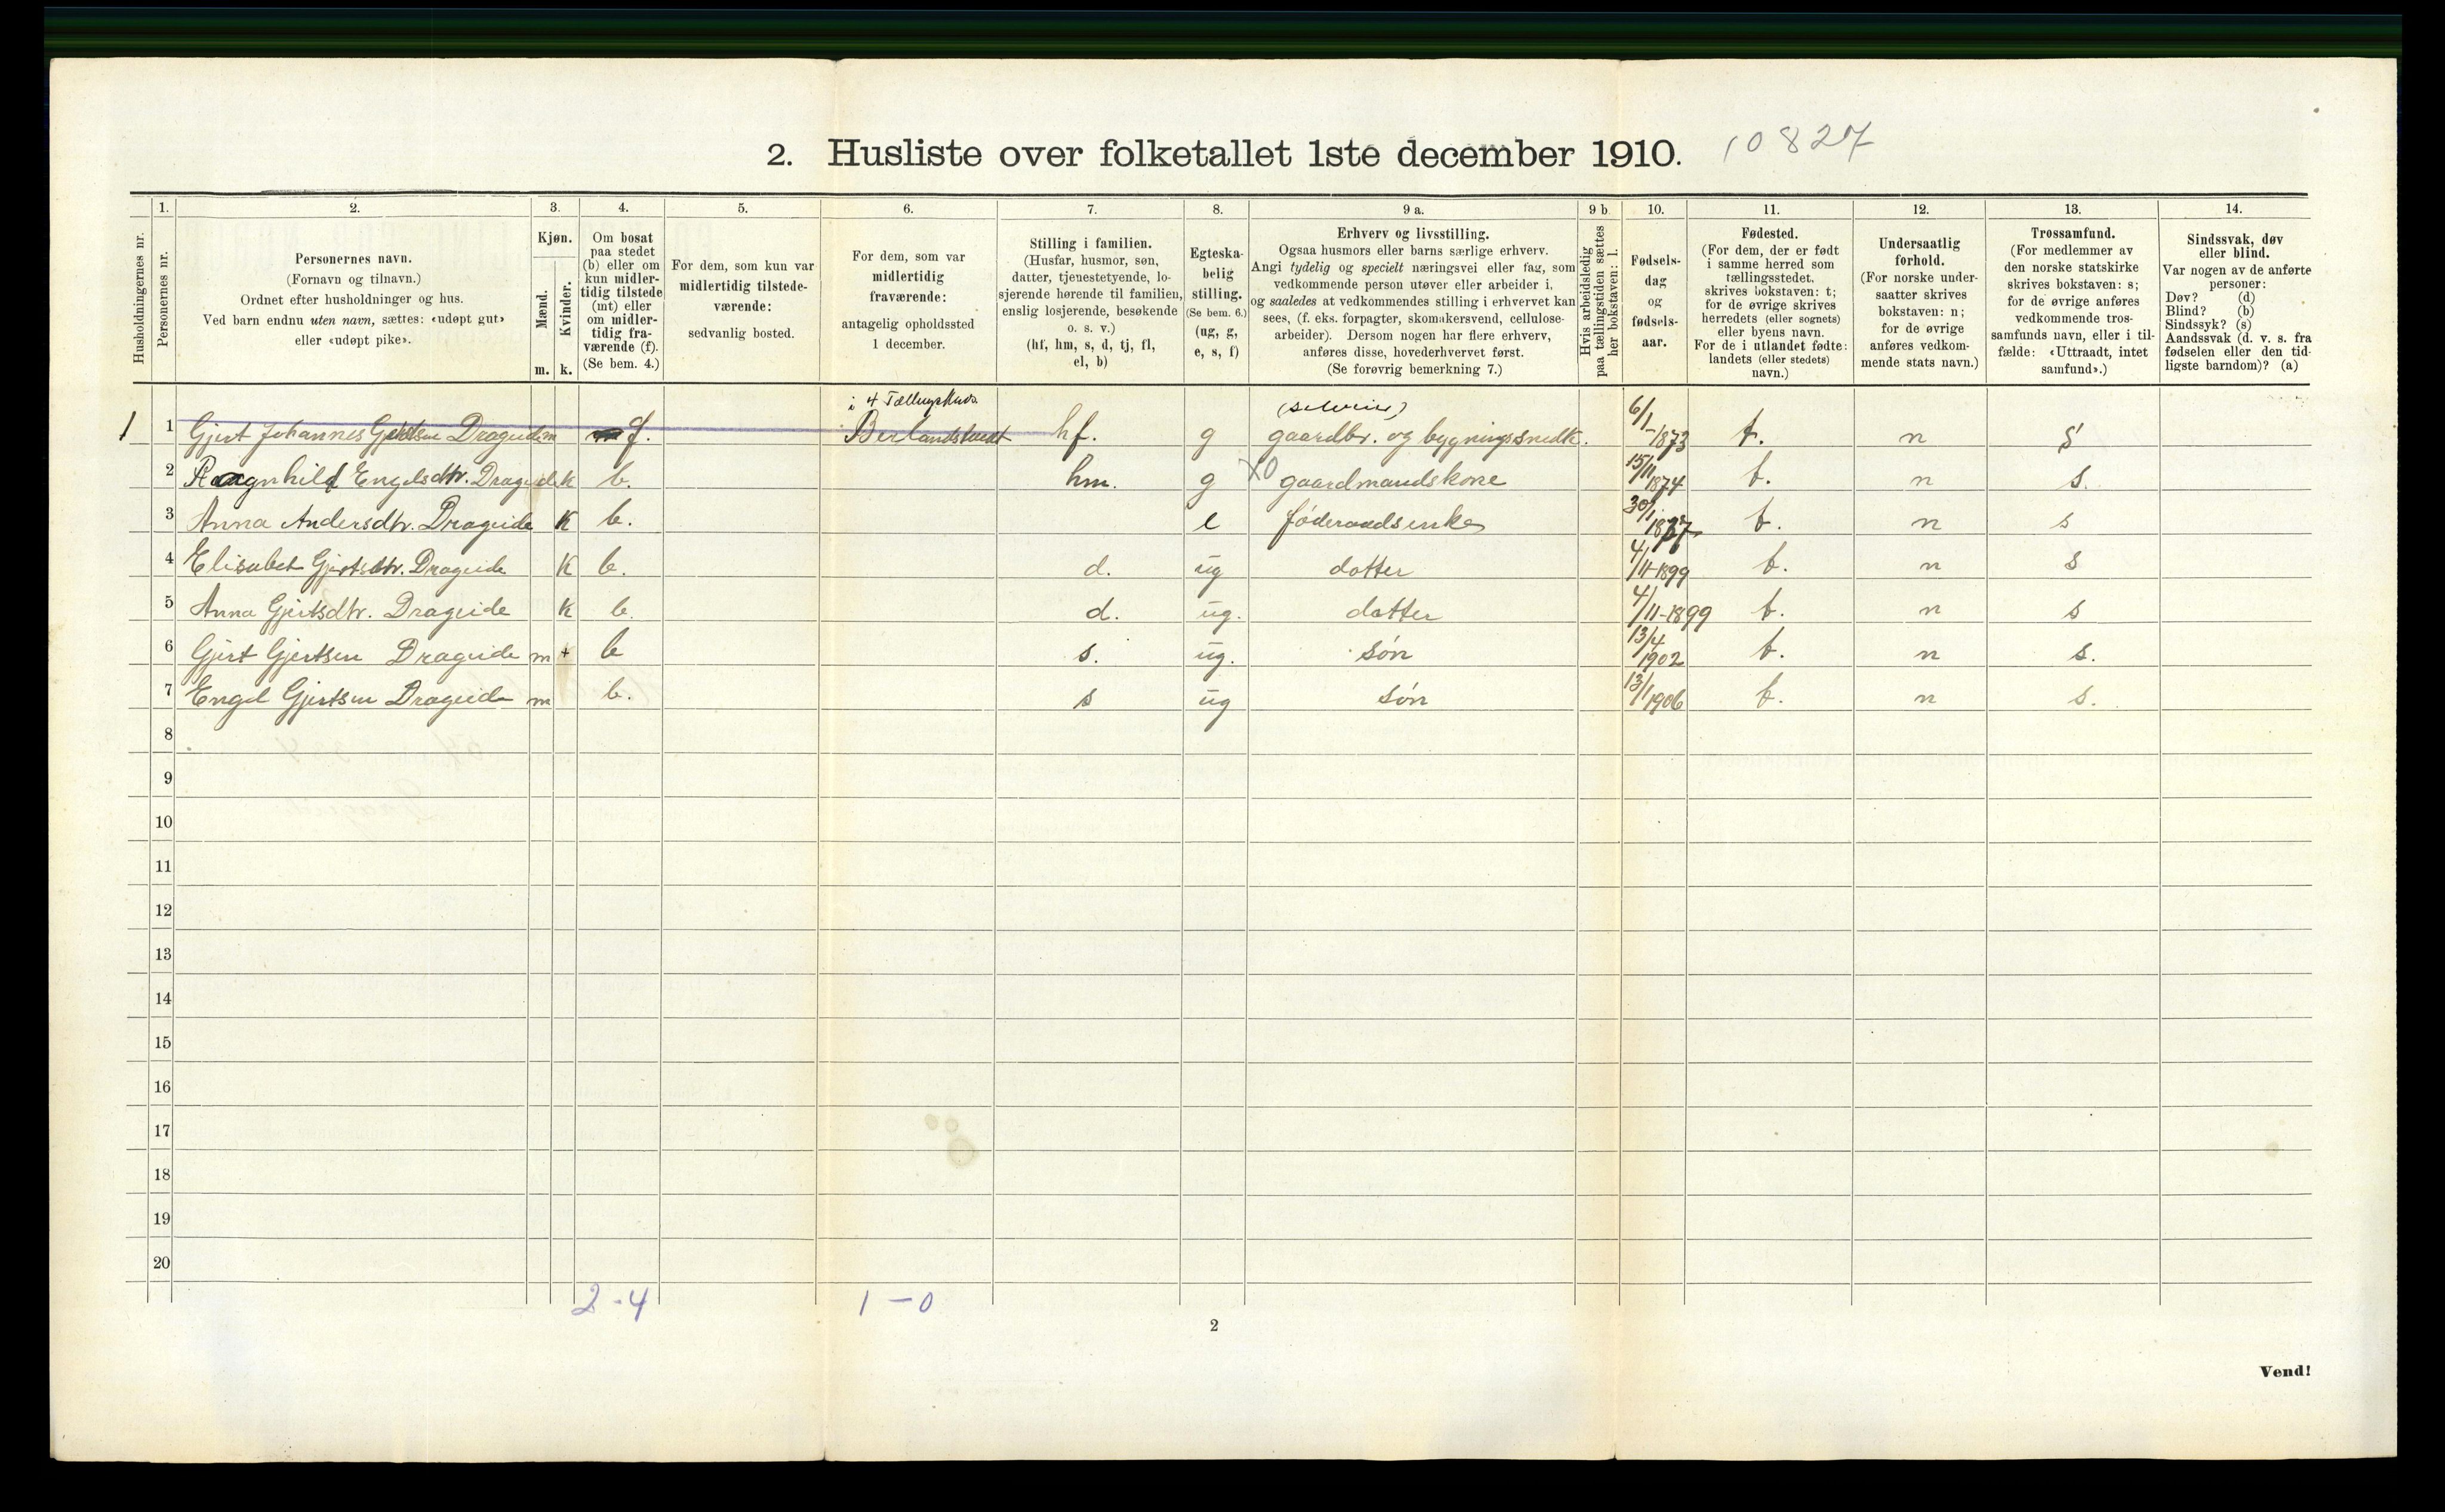 2. Husliste over folketallet 1ste december 1910. 10827
Husholdningernes nr.
1. 2. 3. 4. 5. 6. 7. 8. 9 a. 9 b. 10. 11. 12. 13. 14.
Personernes nr.
Personernes navn.
(Fornavn og tilnavn.)
Ordnet efter husholdninger og hus.
Ved barn endnu uten navn, sættes: «udøpt gut»
eller «udøpt pike».
Kjøn.
Mænd.
Kvinder.
m. k.
Om bosat
paa stedet
(b) eller om
kun midler-
tidig tilstede
(mt) eller
om midler-
tidig fra-
værende (f).
(Se bem. 4.)
For dem, som kun var
midlertidig tilstede-
værende:
sedvanlig bosted.
For dem, som var
midlertidig
fraværende:
antagelig opholdssted
1 december.
Stilling i familien.
(Husfar, husmor, søn,
datter, tjenestetyende, lo-
sjerende hørende til familien,
enslig losjerende, besøkende
o. s. v.)
(hf, hm, s, d, tj, fl,
el, b)
Egteska-
belig
stilling.
(Se bem. 6.)
(ug, g,
e, s, f)
Erhverv og livsstilling.
Ogsaa husmors eller barns særlige erhverv.
Angi tydelig og specielt næringsvei eller fag, som
vedkommende person utøver eller arbeider i,
og saaledes at vedkommendes stilling i erhvervet kan
sees, (f. eks. forpagter, skomakersvend, cellulose-
arbeider). Dersom nogen har flere erhverv,
anføres disse, hovederhvervet først.
(Se forøvrig bemerkning 7.)
Hvis arbeidsledig
paa tællingstiden sættes
her bokstaven: l.
Fødsels-
dag
og
fødsels-
aar.
Fødested.
(For dem, der er født
i samme herred som
tællingsstedet,
skrives bokstaven: t;
for de øvrige skrives
herredets (eller sognets)
eller byens navn.
For de i utlandet fødte:
landets (eller stedets)
navn.)
Undersaatlig
forhold.
(For norske under-
saatter skrives
bokstaven: n;
for de øvrige
anføres vedkom-
mende stats navn.)
Trossamfund.
(For medlemmer av
den norske statskirke
skrives bokstaven: s;
for de øvrige anføres
vedkommende tros-
samfunds navn, eller i til-
fælde: «Uttraadt, intet
samfund».)
Sindssvak, døv
eller blind.
Var nogen av de anførte
personer:
Døv? (d)
Blind? (b)
Sindssyk? (s)
Aandssvak (d. v. s. fra
fødselen eller den tid-
ligste barndom)? (a)
i 4 Tællingskreds
1 1 Gjert Johannes Gjertsen Drageide m f. hf. g gaardbr. og bygningssnedk. 6/1-1873 t. n s
2 Ragnhild Engelsdtr. Drageide k b. hm. g XO gaardmandskone 15/11 1874 t. n s.
3 Anna Andersdtr. Drageide K b. e føderaadsenke 30/1 t. n s
4 Elisabet Gjertsdtr. Drageide K b. d. ug datter 4/11-1899 t. n s
5 Anna Gjertsdtr. Drageide k b. d. ug. datter 4/11-1899 t. n s
6 Gjert Gjertsen Drageide m + b s. ug. søn 13/4 1902 t. n s.
7 Engel Gjertsen Drageide m b. s ug søn 13/1 1906 t. n s.
8
9
10
11
12
13
14
15
16
17
18
19
20
2-4 1-0
2
Vend!